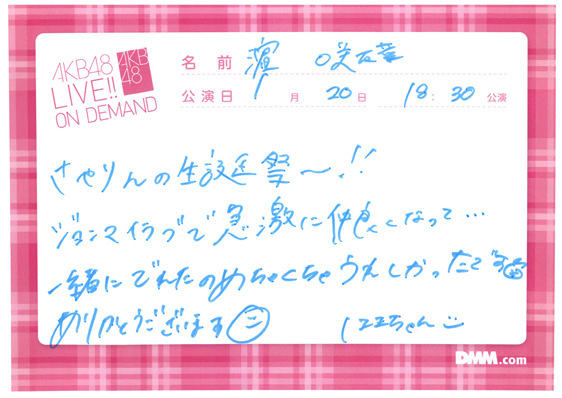 AKB48
LIVE!!
ON DEMAND
AKB
48
名前 濵 咲友菜
公演日 1月 20日 18:30公演
さやりんの生誕祭〜!!
ジョンマイラブで急激に仲良くなって…
一緒にでれたのめちゃくちゃうれしかったです
ありがとうございます
ちゃん
DMM.com